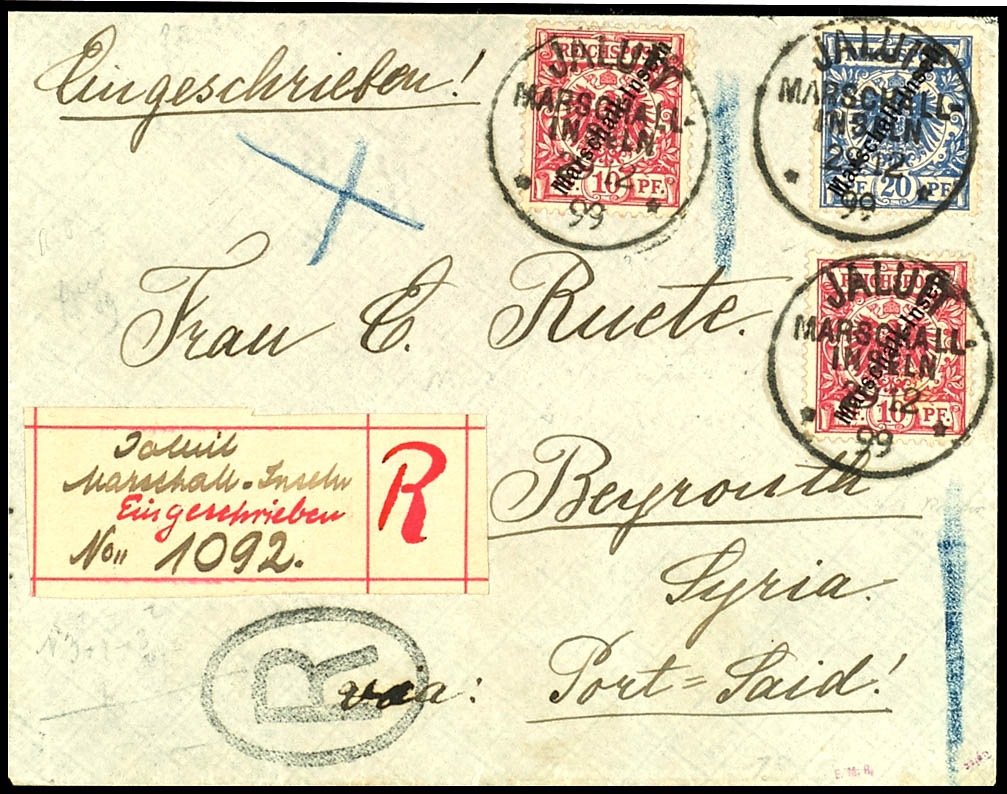 Eingeschrieben!
REICHSPOST
Marschall-Inseln
10 PF.
JALUIT
MARSCHALL-
INSELN
29 12
99
Marschall-Inseln
20 PF
JALUIT
MARSCHALL-
INSELN
29 12
99
Frau E. Ruete.
REICHSPOST
Marschall-Inseln
10 PF.
JALUIT
MARSCHALL-
INSELN
29 12
99
Jaluit
Marschall-Inseln
Eingeschrieben
No 1092.
R
Beyrouth
Syria.
R
via: Port=Said!
E. M. R.